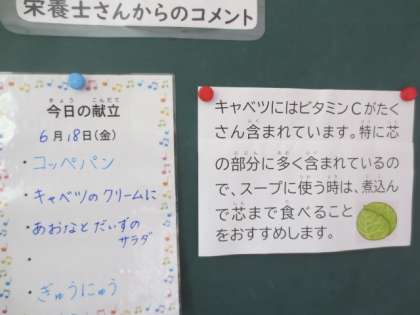 栄養士さんからのコメント
今日の献立
6月18日(金)
・コッペパン
・キャベツのクリームに
・あおなとだいずの
サラダ
・
・ぎゅうにゅう
キャベツにはビタミンCがたく
さん含まれています。特に芯
の部分に多く含まれているの
で、スープに使う時は、煮込ん
で芯まで食べること
をおすすめします。